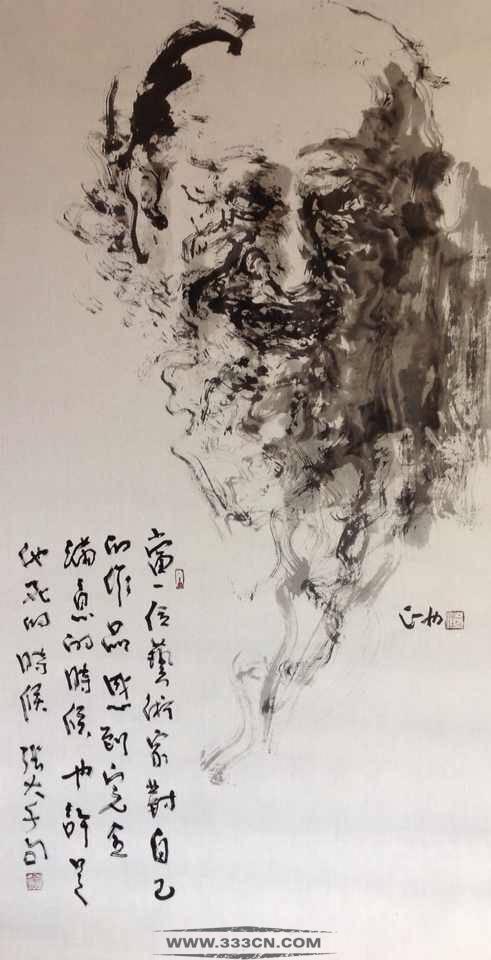 當一位藝術家對自己
的作品感到完全
滿意的時候也許是
他死的時候 張大千句
WWW.333CN.COM